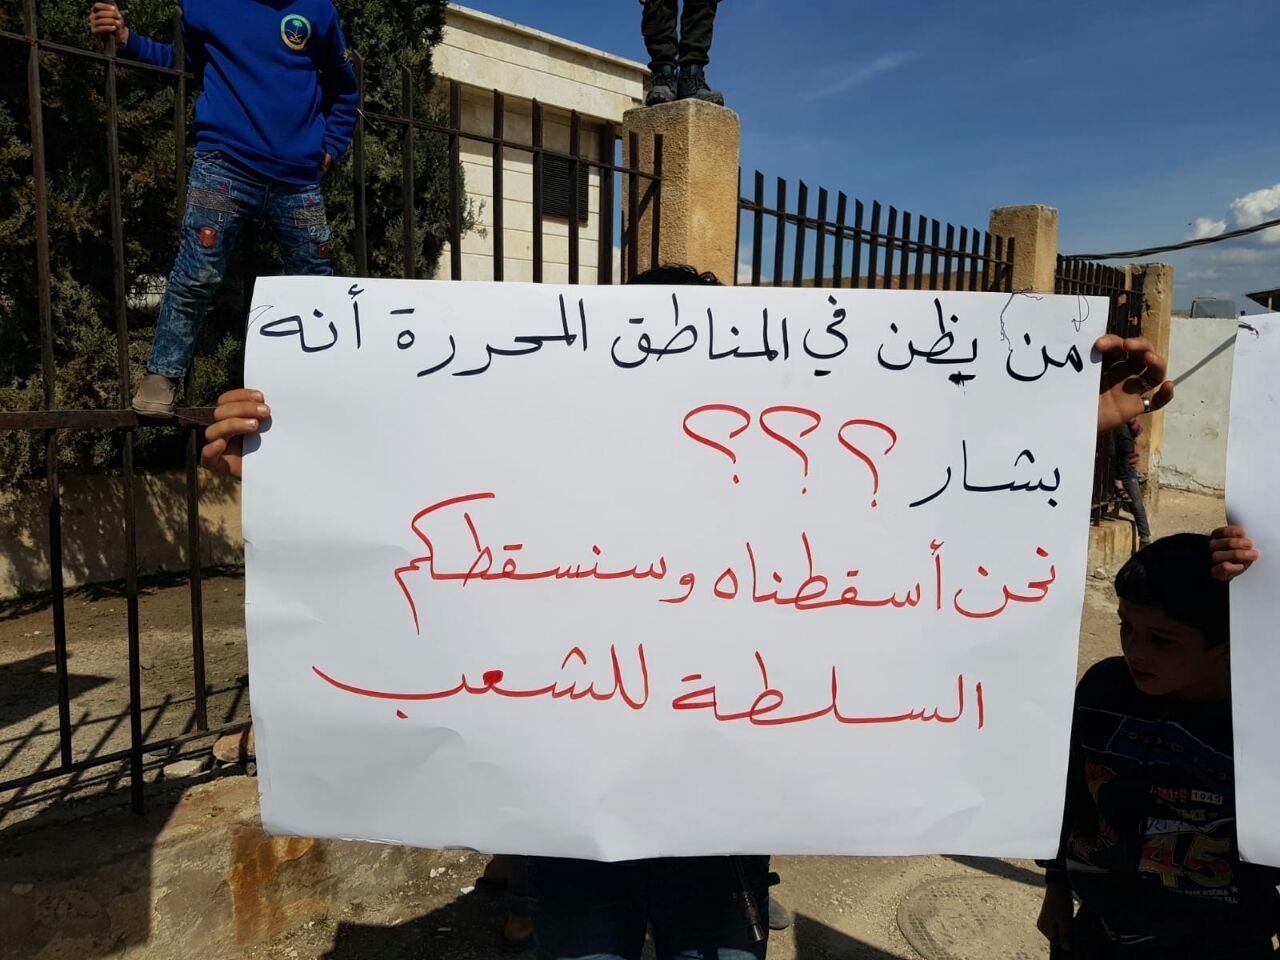 من يظن في المناطق المحررة أنه
بشار ؟؟؟
نحن أسقطناه وسنسقطكم
السلطة للشعب
1945
45